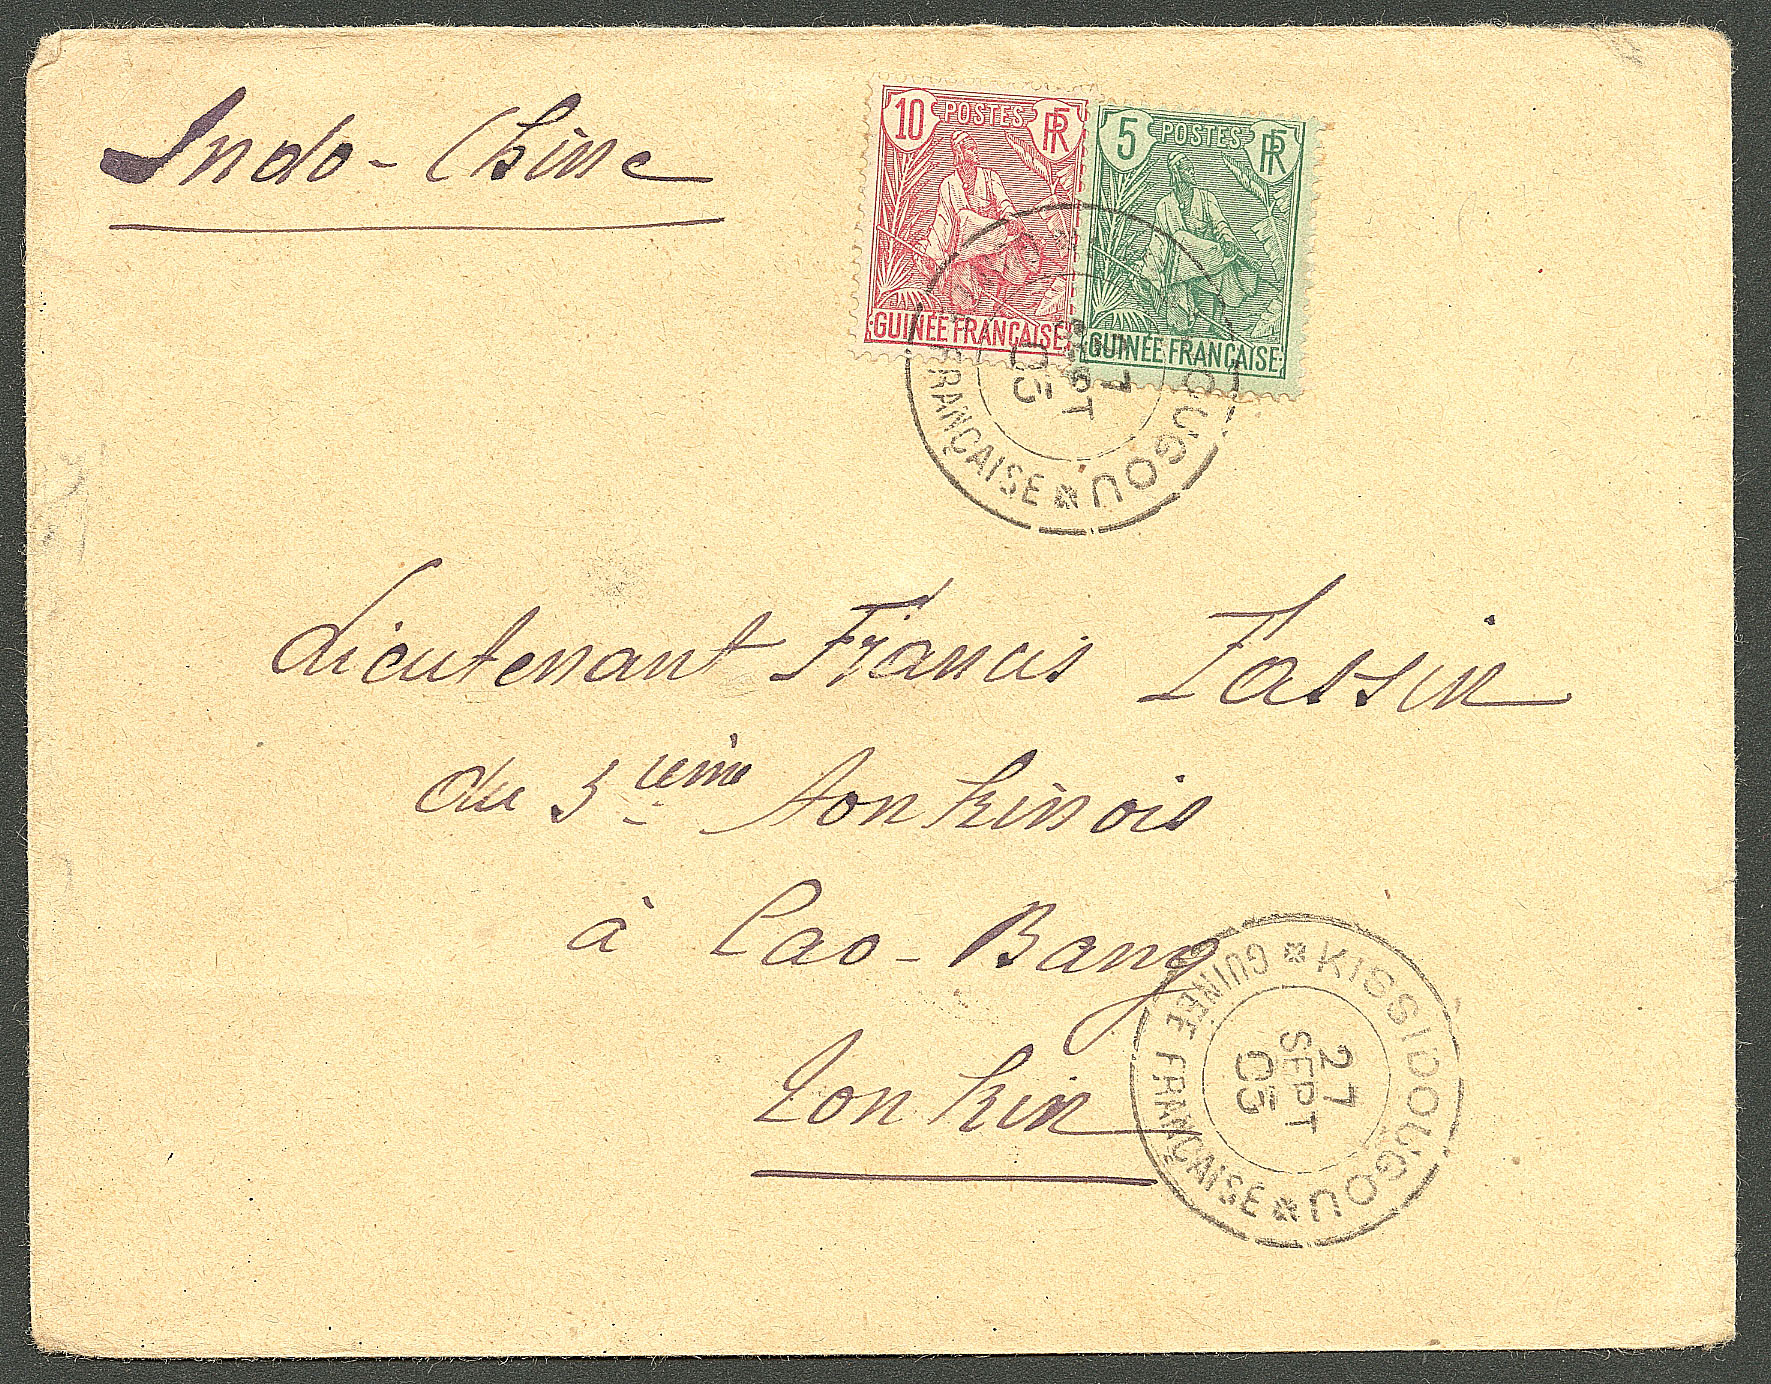 Indo-Chine
10 POSTES RF
GUINÉE FRANÇAISE
5 POSTES RF
GUINÉE FRANÇAISE
OUGOU
27
SEPT
05
FRANÇAISE
Lieutenant Francis Tassin
du 3ième tonkinois
à Cao-Bang
Tonkin
KISSIDOUGOU
27
SEPT
05
GUINÉE FRANÇAISE